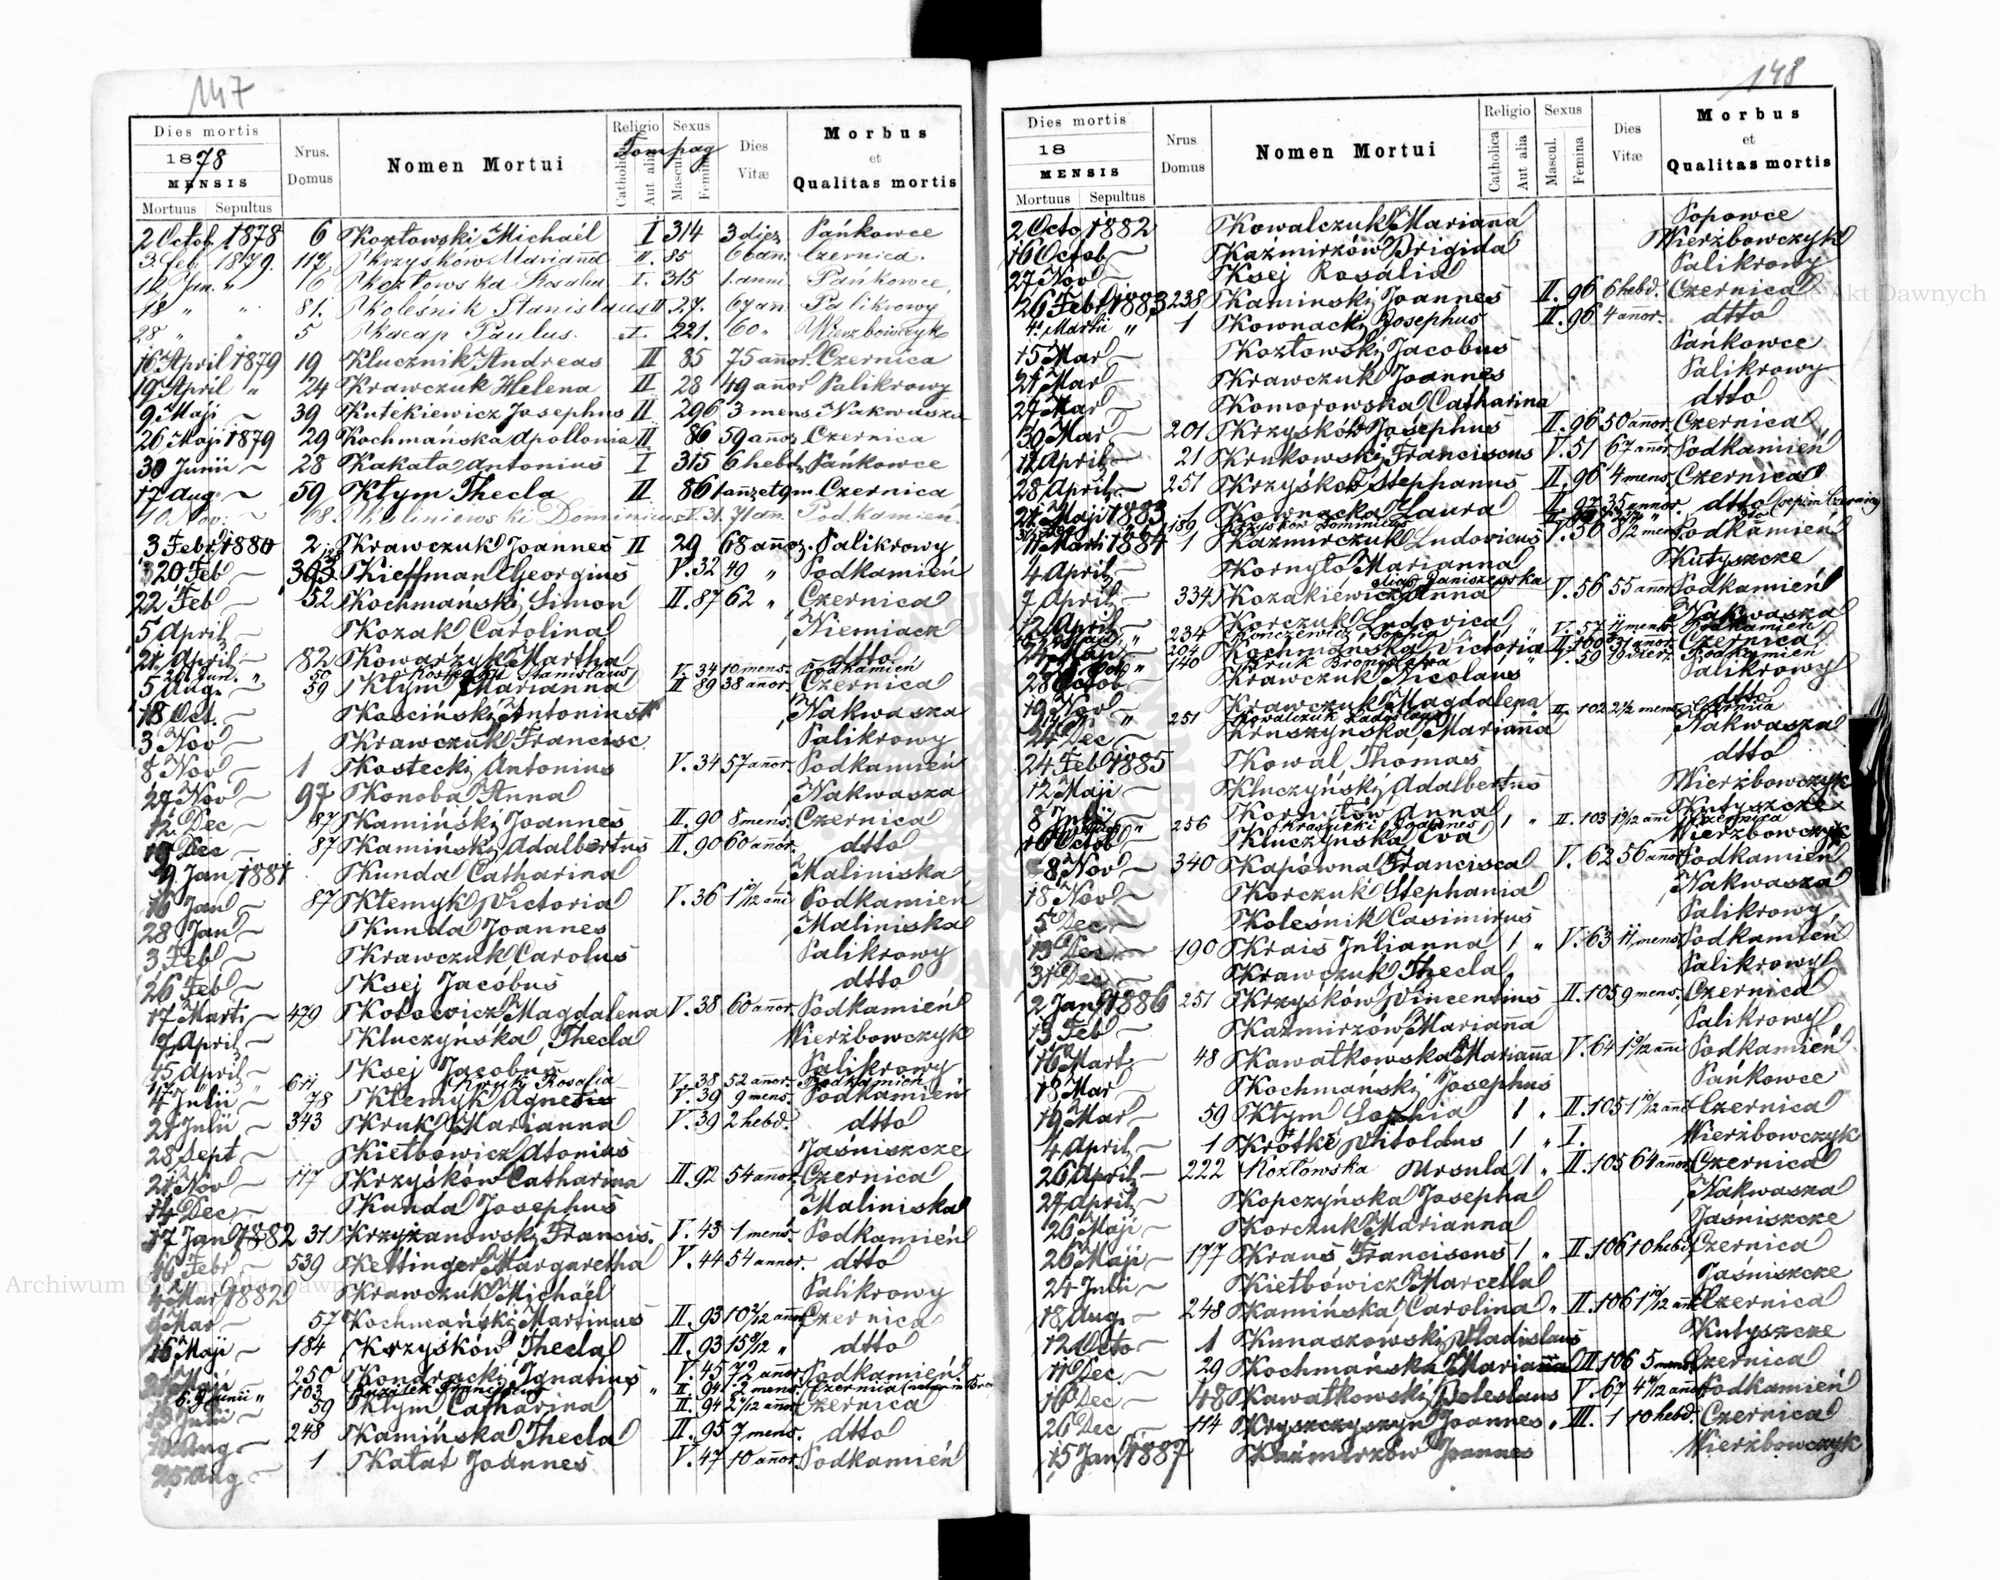 147
Dies mortis
1878
MENSIS
Mortuus Sepultus
Nrus. Domus
Nomen Mortui
Religio
Catholica
Aut alia
Sexus
Mascul.
Femina
Tom pag
Dies Vitæ
Morbus
et
Qualitas mortis
2 Octob 1878 6 Kozłowski Michaël I 314 3 dies Pańkowce
3 Feb. 1879. 117 Krzysków Marianna II. 85 66 an. Czernica.
12 Jan. " 16 Kozłowska Rosalia I. 315 1. anni Pańkowce
18 " " 81. Koleśnik Stanislaus II 27. 67 an. Palikrowy
28 " " 5 Kacap Paulus. I. 221. 60 " Wierzbowczyk
16 April 1879 19 Klucznik Andreas II 85 75 annor. Czernica
19 April " 24 Krawczuk Helena II 28 49 annor Palikrowy
9 Maji ~ 39 Kutekiewicz Josephus II 296 3 mens Nakwasza
26 Maji 1879 29 Kochmańska Apollonia II 86 59 annor Czernica
30 Junii ~ 28 Kakata Antonius I 315 6 hebd. Pańkowce
17 Aug. ~ 59 Kłym Thecla II 86 1 an. et 9 m. Czernica
10 Nov. 68. Kaliniewski Dominicus V. 31. 71 an. Podkamień.
3 Febr 1880 2 Krawczuk Joannes II 29 68 annor. Palikrowy
20 Feb ~ Kieffman Georgius V. 32 49 " Podkamień
22 Feb ~ 52 Kochmański Simon II. 87 62 " Czernica
5 April ~ Kozak Carolina Niemiacz
21 April ~ 82 Kowarzyk Martha dtto
24 Jun. " 50 Kostecki Stanislaus V. 34 10 mens. Podkamień
5 Aug. ~ 59 Kłym Marianna II 89 38 annor. Czernica
18 Oct. ~ Kościński Antonius Nakwasza
3 Nov ~ Krawczuk Francisc Palikrowy
8 Nov ~ 1 Kostecki Antonius V. 34 57 annor. Podkamień
27 Nov ~ 97 Konoba Anna Nakwasza
12 Dec ~ 87 Kamiński Joannes II. 90 8 mens. Czernica
19 Dec ~ 87 Kamiński Adalbertus II. 90 60 annor. dtto
9 Jan 1881 Kunda Catharina Maliniska
16 Jan ~ 87 Kłemyk Victoria V. 36 1 10/12 ani Podkamień
28 Jan ~ Kunda Joannes Maliniska
3 Feb ~ Krawczuk Carolus Palikrowy
26 Feb ~ Ksej Jacobus dtto
17 Marti ~ 479 Kotowicz Magdalena V. 38 60 annor. Podkamień
17 April ~ Kluczyńska Thecla Wierzbowczyk
15 April ~ Ksej Jacobus Palikrowy
Kruk Rosalia V. 38 52 annor. Podkamień
4 Julii ~ 78 Kłemyk Agnetis V. 39 9 mens. Podkamień
27 Julii ~ 343 Kruk Marianna V. 39 2 hebd. dtto
28 Sept ~ Kiełbówicz Atonius Jaśniszcze
27 Nov ~ 117 Krzysków Catharina II. 92 54 annor. Czernica
14 Dec ~ Kunda Josephus Maliniska
17 Jan 1882 31 Krzyżanowski Francis. V. 43 1 mens. Podkamień
16 Febr ~ 539 Kettinger Margaretha V. 44 54 annor. dtto
4 Mar 1882 Krawczuk Michaël Palikrowy
9 Mar ~ 57 Kochmański Martinus II. 93 10 3/12 ann Czernica
16 Maji ~ 184 Krzysków Thecla II. 93 15 9/12 " dtto
250 Kondracki Ignatius V. 45 72 annor Podkamień
6. Junii " 103 Franciscus II. 94 2 mens. Czernica
13 Julii ~ 59 Kłym Catharina II. 94 2 7/12 annor Czernica
10 Aug ~ 248 Kamińska Thecla II. 95 7 mens. dtto
25 Aug ~ 1 Kałat Joannes V. 47 10 annor. Podkamień
148
Dies mortis
18
MENSIS
Mortuus Sepultus
Nrus Domus
Nomen Mortui
Religio
Catholica
Aut alia
Sexus
Mascul.
Femina
Dies Vitæ
Morbus
et
Qualitas mortis
2 Octo 1882 Kowalczuk Marianna Popowce
16 Octob ~ Kaźmirzów Brigida Wierzbowczyk
27 Nov ~ Ksej Rosalia Palikrowy
26 Feb 1883 238 Kaminski Joannes II. 96 6 hebd. Czernica
4. Martii " 1 Kownacki Josephus II. 96 4 anor. dtto
15 Mar ~ Kozłowski Jacobus Pańkowce
21 Mar ~ Krawczuk Joannes Palikrowy
27 Mar ~ Komorowska Catharina dtto
30 Mar ~ 201 Krzysków Josephus II. 96 50 annor. Czernica
12 April ~ 21 Krukowski Franciscus V. 51 67 annor. Podkamień
28 April ~ 251 Krzyśków Stephanus II. 96 4 mens. Czernica
21 Maji 1883 1 Kownacka Laura II. 97 35 annor. dtto
189 Krzysków Dominicus
11 Marti 1884 1 Kazmirczuk Ludovicus V. 56 8/2 mens Podkamień
4 April ~ Kornyło Marianna Kutyszcze
7 April ~ 334 Kozakiewicz Anna alias Janiszewska V. 56 55 annor Podkamień
12 April ~ Korczuk Ludovica Nakwasza
234 Konczewicz Sophia V. 57 11 mens Podkamień
204 Kochmańska Victoria II. 100 31 annor. Czernica
140 Kruk Bronislava V. 59 Podkamień
28 Octob ~ Krawczuk Nicolaus Palikrowy
19 Nov ~ Krawczuk Magdalena dtto
251 Kowalczuk Ladislaus II. 102 2 1/2 mens Czernica
24 Dec ~ Kruszyńska Marianna Nakwasza
24 Feb 1885 Kowal Thomas dtto
12 Maji ~ Kluczyński Adalbertus Wierzbowczyk
8 Julii ~ Kornyłów Anna Kutyszcze
256 Krasucki Joannes II. 103 1 9/12 ani Czernica
16 Octob ~ Kluczyńska Eva Wierzbowczyk
8 Nov ~ 340 Kapówna Francisca V. 62 56 annor Podkamień
18 Nov ~ Korczuk Stephania Nakwasza
5 Dec ~ Koleśnik Casimirus Palikrowy
19 Dec ~ 190 Krais Julianna 1 " V. 63 11 mens Podkamień
31 Dec ~ Krawczuk Thecla Palikrowy
2 Jan 1886 251 Krzyśków Vincentius II. 105 9 mens. Czernica
13 Feb ~ Kaźmirzów Marianna Palikrowy
16 Mart ~ 48 Kawałkowska Marianna V. 64 1 9/12 ani Podkamień
18 Mar ~ Kochmański Josephus Pańkowce
19 Mar ~ 59 Kłym Sophia 1 " II. 105 1 10/12 ani Czernica
4 April ~ 1 Krótki Vitoldus 1 " I. Wierzbowczyk
26 April ~ 222 Kozłowska Ursula 1 " II. 105 64 annor Czernica
27 April ~ Kopczyńska Josepha Nakwasza
26 Maji ~ Korczuk Marianna Jaśniszcze
26 Maji ~ 177 Kraus Franciscus 1 " II. 106 10 hebd. Czernica
24 Julii ~ Kiełbówicz Marcella Jaśniszcze
18 Aug. ~ 248 Kamińska Carolina " II. 106 1 10/12 ani Czernica
12 Octo ~ 1 Kunaszowski Vladislaus Kutyszcze
11 Dec. ~ 29 Kochmańska Marianna II. 106 5 mens Czernica
16 Dec ~ 48 Kawałkowski Boleslaus V. 67 4 11/12 annor Podkamień
26 Dec ~ 114 Kryszczyszyn Joannes " III. 1 10 hebd. Czernica
15 Jan 1887 Kaźmirzów Joannes Wierzbowczyk
Archiwum Główne Akt Dawnych